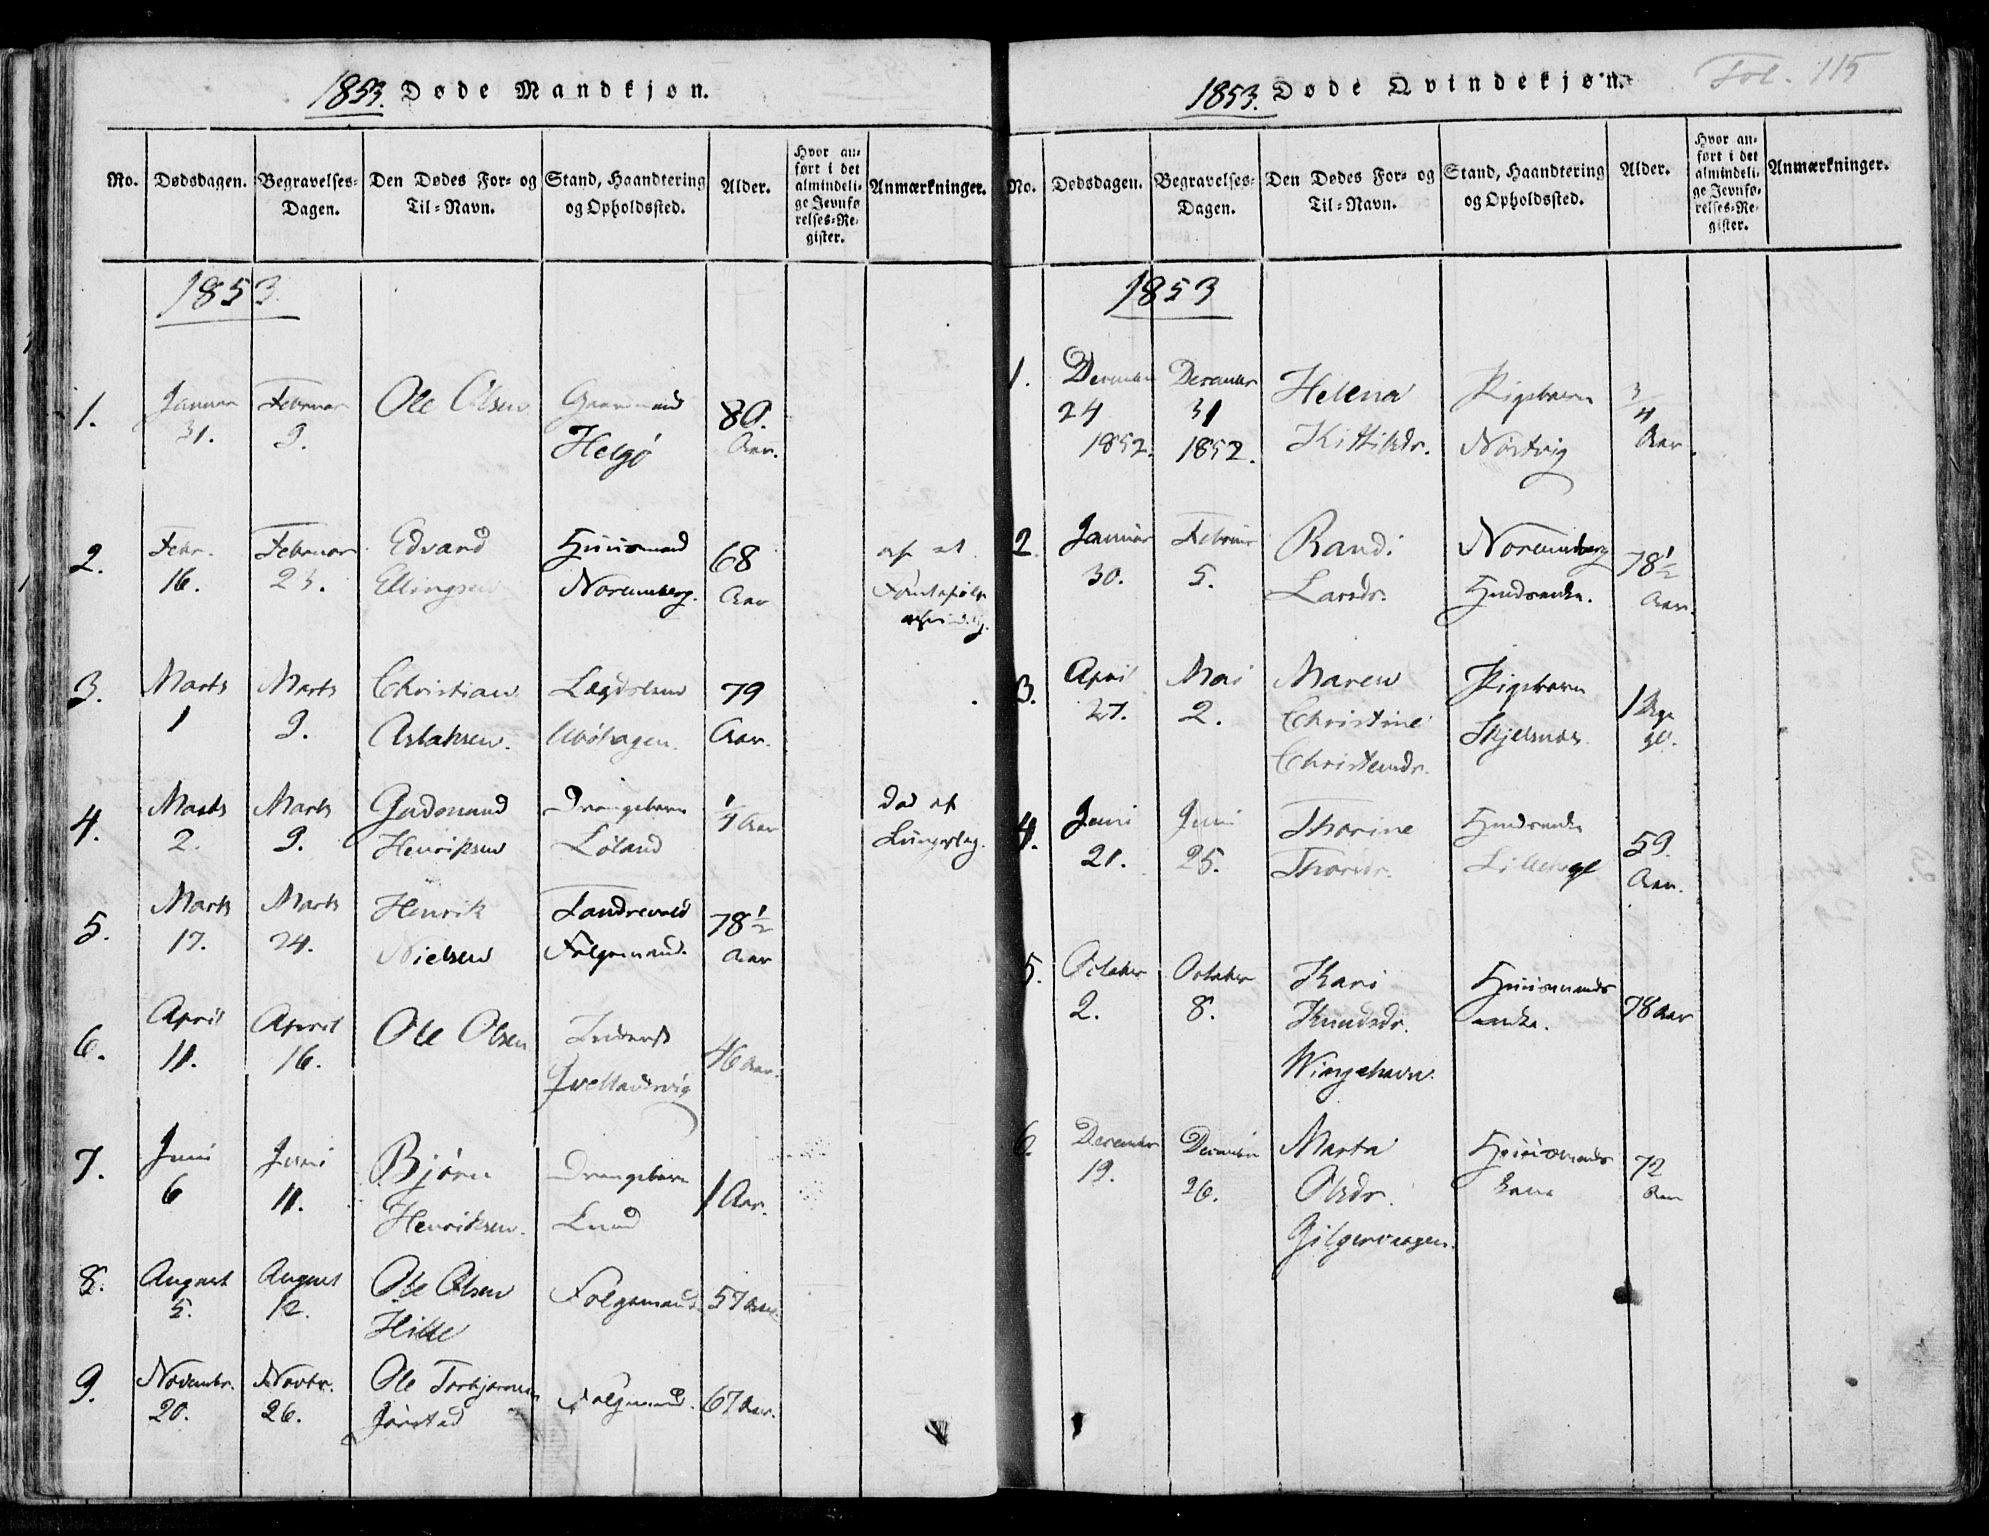 1853. Døde Mandkjøn.
No. Dødsdagen. Begravelses-Dagen. Den Dødes For- og Til-Navn. Stand, Haandtering og Opholdssted. Alder. Hvor anført i det almindelige Jevnførelses-Register. Anmærkninger.
1853.
1. Januar 31. Februar 9. Ole Olsen Gaardmand Helgø 80. Aar.
2. Febr. 16. Februar 23. Edvard Ellingsen Huusmand Norumberg. 68 Aar af et
3. Marts 1 Marts 9. Christian Aslaksen. Lægdslem 79 Aar.
4. Marts 2. Marts 9. Gudmund Henriksen Drengebarn Løland 1/4 Aar Død af Lungeslag.
5. Marts 17. Marts 24. Henrik Nielsen Tandrevold Folgemand. 78 1/2 Aar
6. April 11. April 16. Ole Olsen Inderst Qvellandsvig 46 Aar.
7. Juni 6 Juni 11. Bjørn Henriksen. Drengebarn Lund 1 Aar.
8. August 5. August 12. Ole Olsen Hille Folgemand. 57 Aar.
9. Novembr. 20. Novbr. 26. Ole Torbjørnsen Jørstad Folgemand. 67 Aar.
1853. Døde Qvindekjøn.
Fol. 115
No. Dødsdagen. Begravelses-Dagen. Den Dødes For- og Til-Navn. Stand, Haandtering og Opholdssted. Alder. Hvor anført i det almindelige Jevnførelses-Register. Anmærkninger.
1853
1. December 24 1852. December 31 1852. Helena Kittilsdr. Pigebarn Nørtvig 3/4 Aar
2 Januar 30. Februar 5. Randi Larsdr. Norumberg 78 1/2 Aar.
3. April 27. Mai 2. Maren Christine Christensdr. Pigebarn Skjelsnes. 1 Dage gl.
4. Juni 21. Juni 25. Thorine Thorsdr. 59. Aar.
5. October 2. October 8. Kari Knudsdr. Wingehavn. Huusmands enke. 78 Aar
6. December 19. December 26. Marta Olsdr. Huusmands kone 72 Aar